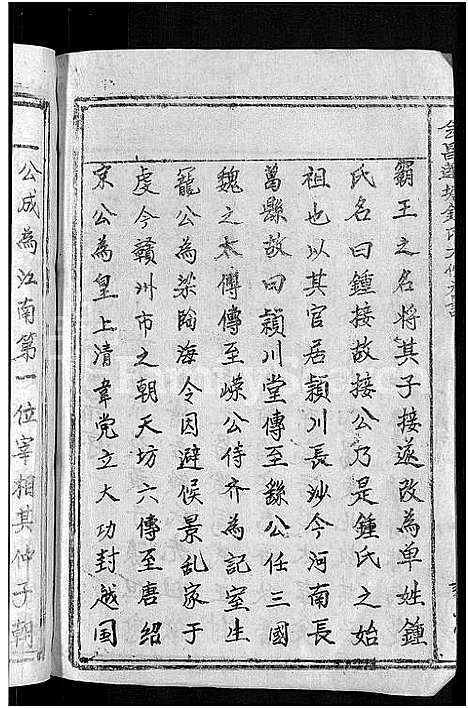 霸王之名將其子接遂改為单姓鍾
氏名曰鍾接故接公乃是鍾氏之始
祖也以其官居潁川長沙今河南長
葛縣故曰潁川堂傳至繇公任三國
魏之太傅傳至嶸公侍齐為記室生
寵公為梁臨海令因避候景乱家于
虔今贛州市之朝天坊六傳至唐绍
京公為皇上清韋党立大功封越国
公成為江南第一位宰相其仲子朝